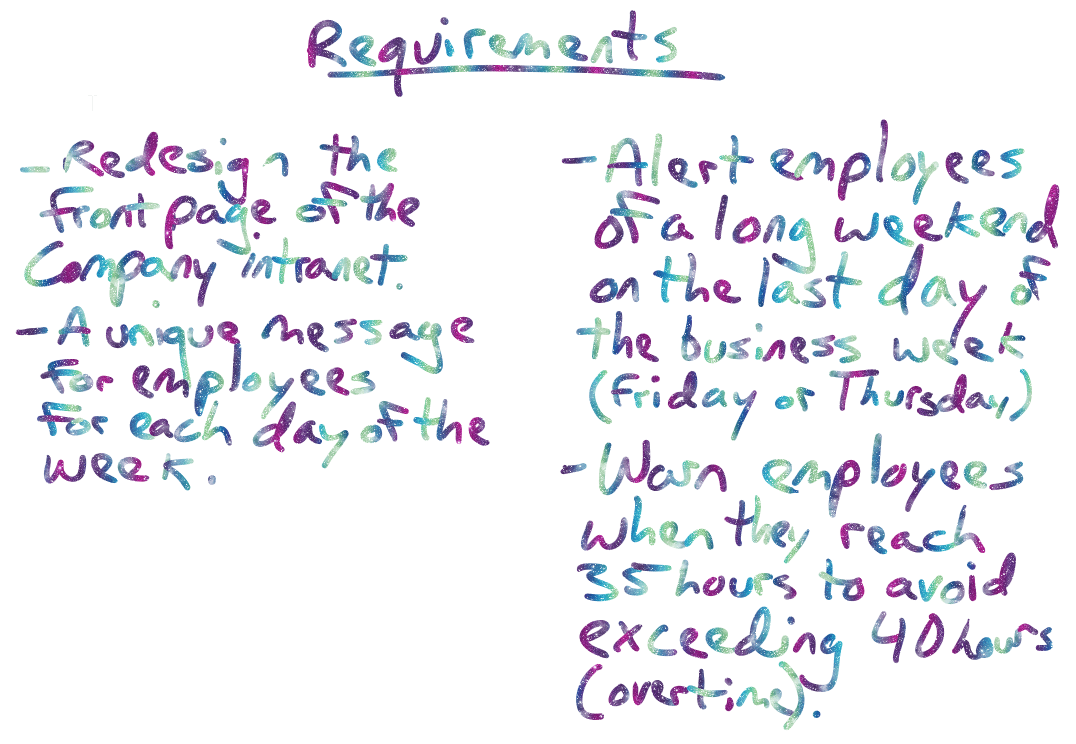 Requirements
- Redesign the
front page of the
Company intranet.
- A unique message
for employees
for each day of the
week.
- Alert employees
of a long weekend
on the last day of
the business week
(Friday or Thursday)
- Warn employees
when they reach
35 hours to avoid
exceeding 40 hours
(overtime).